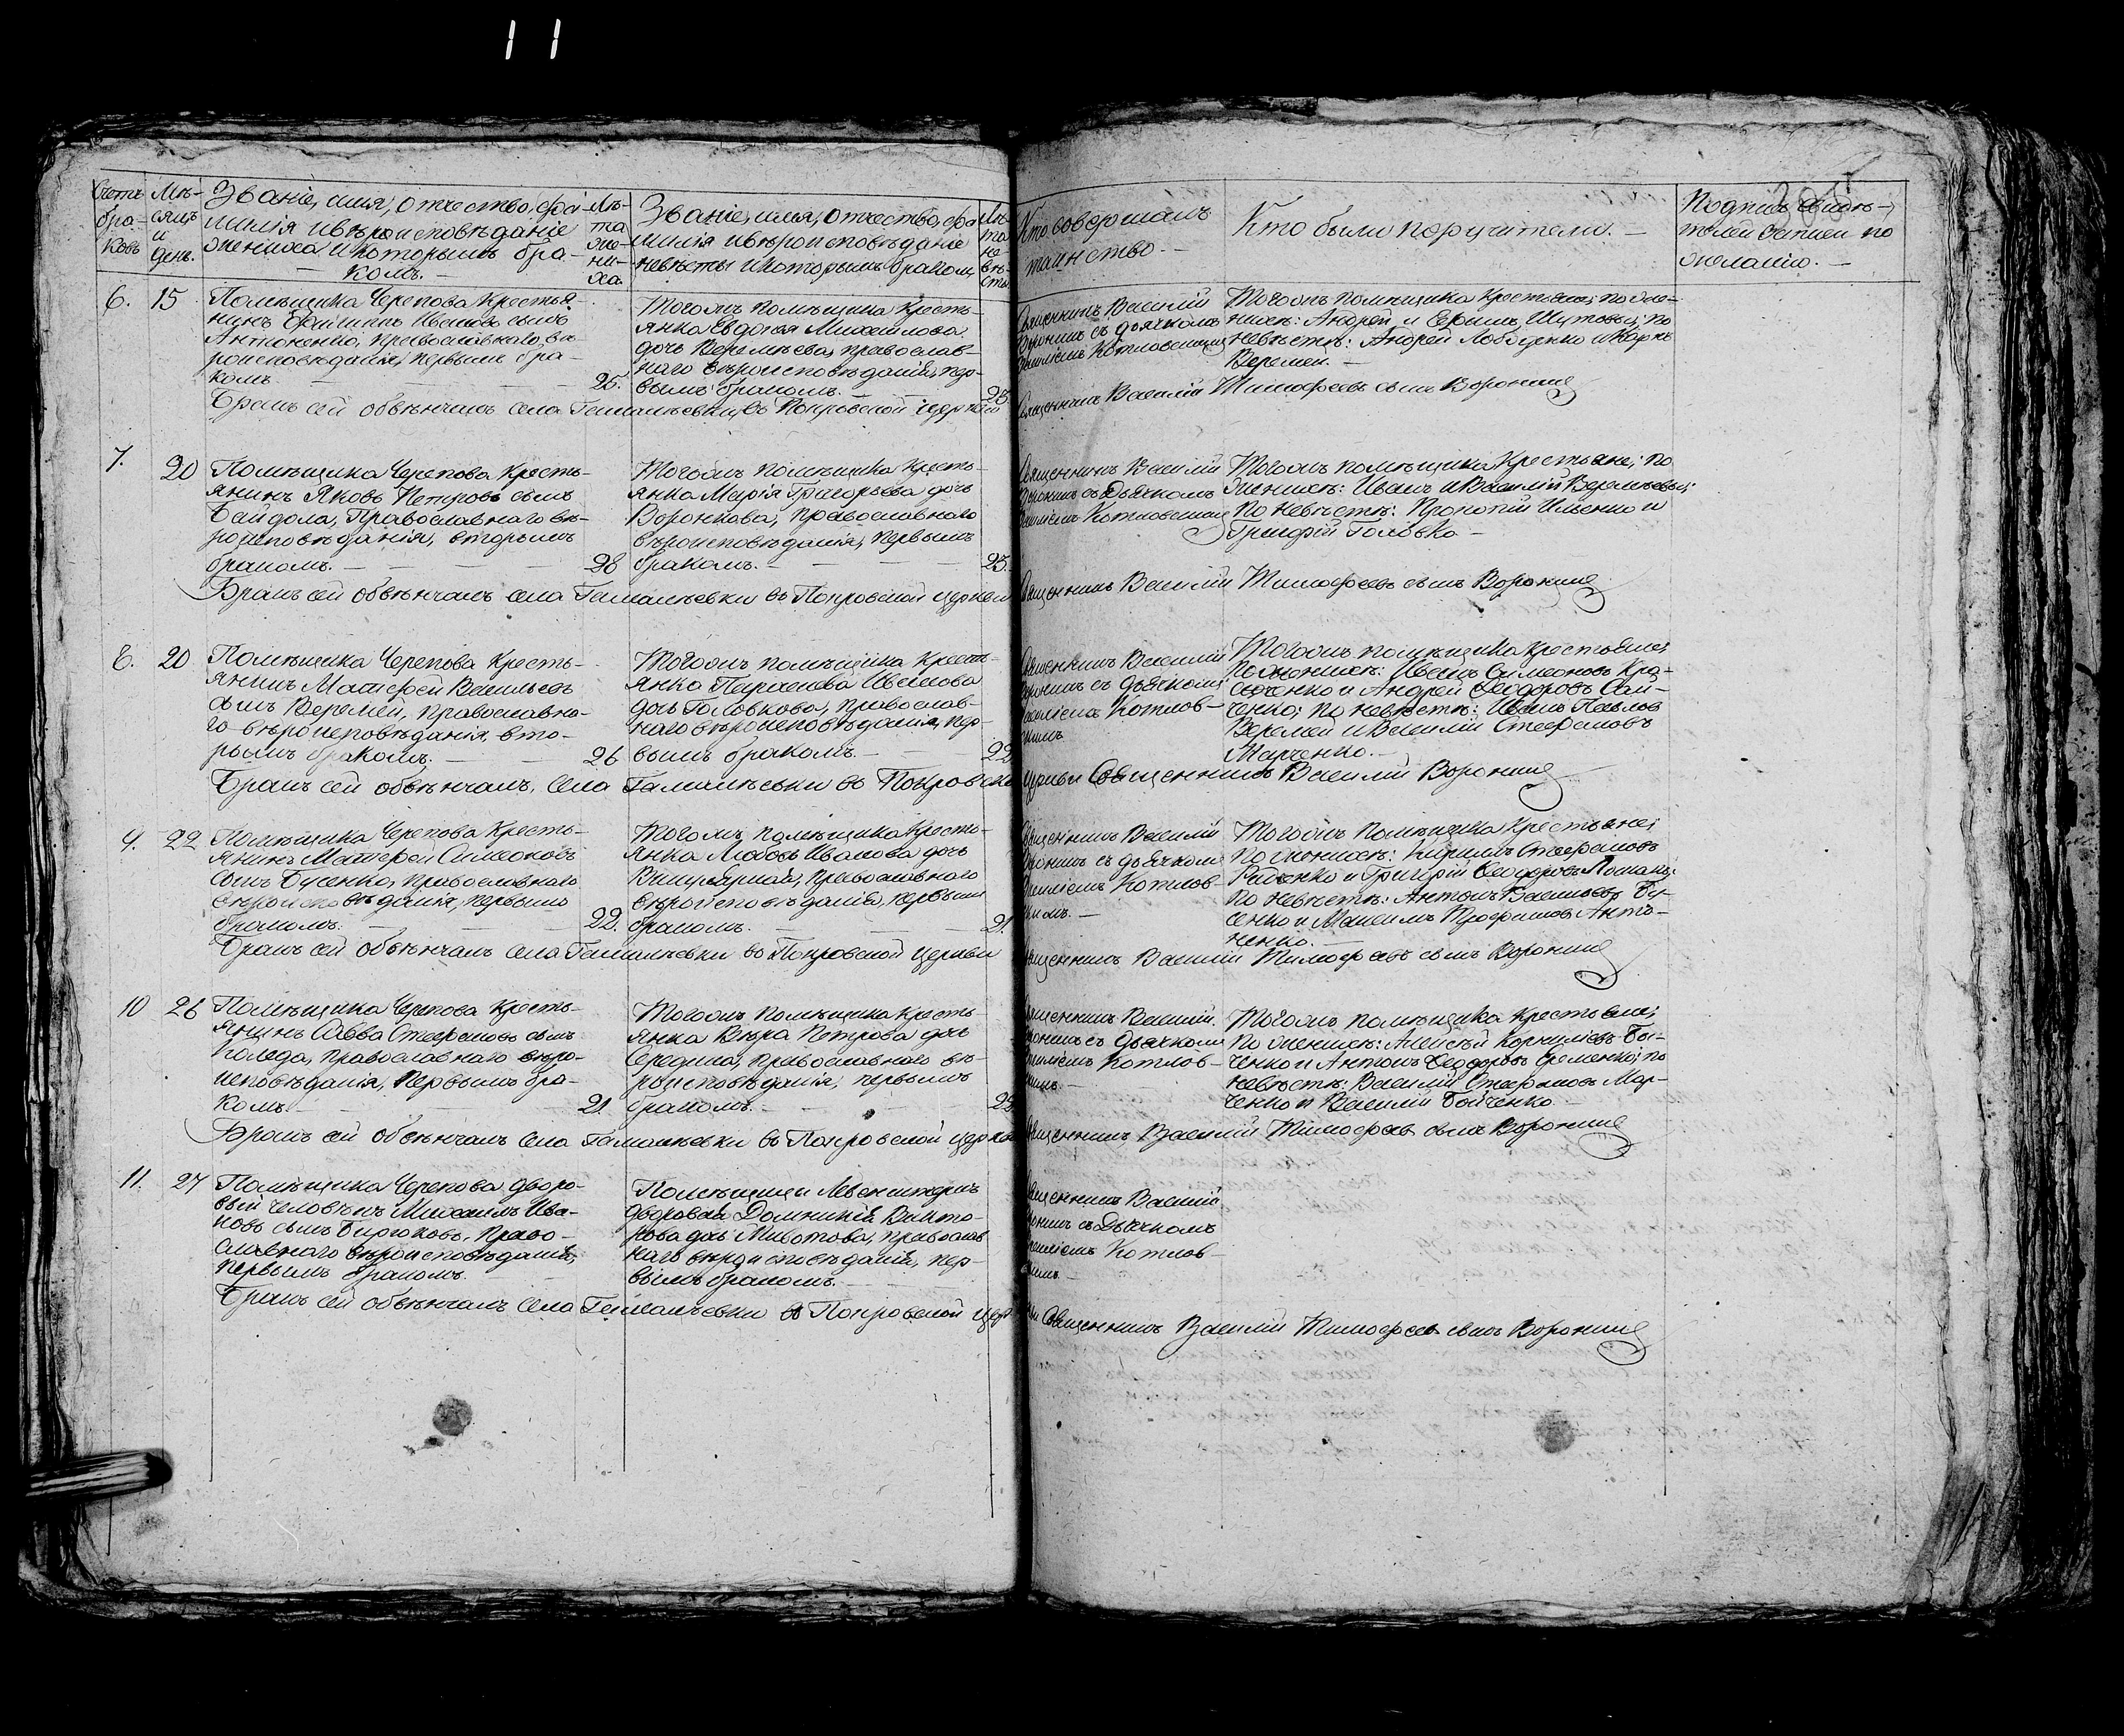 11
Счетъ бра-ковъ
Мѣ-сяцъ и день.
Званіе, имя, отчество, фа-
милія и вѣроисповѣданіе
жениха и которымъ бра-
комъ. —
Лѣ-та же-ни-ха.
Званіе, имя, отчество, фа
милія и вѣроисповѣданіе
невѣсты и которымъ бракомъ
Лѣ-та не вѣ-сты
Кто совершалъ
таинство. —
Кто были поручители. —
Подпись свидѣ-
телей записи по
желанію. —
6. 15
Помѣщика Черепова крестья-
нинъ Филиппъ Ивановъ сынъ
Антоненко, православнаго вѣ
роисповѣданія, первымъ бра-
комъ — 25.
Тогожъ помѣщика кресть-
янка Евдокія Михайлова
дочь Веремѣева, православ-
наго вѣроисповѣданія, пер-
вымъ бракомъ. — 23.
Священникъ Василій
Воронинъ съ дьячкомъ
Василіемъ Котловскимъ
Тогожъ помѣщика крестьяне; по же-
нихѣ: Андрей и Ефимъ Шутовы; по
невѣстѣ: Андрей Лободенко и Карпъ
Веремей. —
Бракъ сей обвѣнчалъ села Гамалѣевки въ Покровской церкви
Священникъ Василій Тимофеевъ сынъ Воронинъ
7. 20
Помѣщика Черепова кресть-
янинъ Яковъ Петровъ сынъ
Байдола, Православнаго вѣ-
роисповѣданія, вторымъ
бракомъ. — 28
Тогожъ помѣщика кресть-
янка Марія Григорьева дочь
Воронкова, православнаго
вѣроисповѣданія, первымъ
бракомъ. — 23.
Священникъ Василій
Воронинъ съ Дьячкомъ
Василіемъ Котловскимъ
Тогожъ помѣщика Крестьяне; по
женихѣ: Иванъ и Василій Веремѣевы;
по невѣстѣ: Прокопій Ильенко и
Григорій Головко —
Бракъ сей обвѣнчалъ села Гамалѣевки въ Покровской церкви
Священникъ Василій Тимофеевъ сынъ Воронинъ
8. 20
Помѣщика Черепова кресть-
янинъ Матфей Васильевъ
сынъ Веремей, православна-
го вѣроисповѣданія, вто-
рымъ бракомъ. — 26
Тогожъ помѣщика кресть-
янка Параскева Иванова
дочь Головкова, православ-
наго вѣроисповѣданія, пер-
вымъ бракомъ. — 22
Священникъ Василій
Воронинъ съ дьячкомъ
Василіемъ Котлов-
скимъ
Тогожъ помѣщика крестьяне;
по женихѣ: Иванъ Симеоновъ Кра-
сюченко и Андрей Ѳеодоровъ Сай-
ченко; по невѣстѣ: Иванъ Павловъ
Веремей и Василій Стефановъ
Марченко. —
Бракъ сей обвѣнчалъ, села Гамалѣевки въ Покровской
церкви Священникъ Василій Воронинъ
9. 22
Помѣщика Черепова кресть-
янинъ Матфей Симеоновъ
сынъ Бусенко, православнаго
вѣроисповѣданія, первымъ
бракомъ. — 22.
Тогожъ помѣщика кресть-
янка Любовь Иванова дочь
православнаго
вѣроисповѣданія, первымъ
бракомъ. — 21.
Священникъ Василій
Воронинъ съ дьячкомъ
Василіемъ Котлов-
скимъ. —
Тогожъ помѣщика крестьяне;
по женихѣ: Кирилъ Стефановъ
Радченко и Григорій Ѳеодоровъ
по невѣстѣ: Антонъ Васильевъ Бу-
сенко и Максимъ Трофимовъ Анто-
ненко. —
Бракъ сей обвѣнчалъ села Гамалѣевки въ Покровской церкви
Священникъ Василій Тимофеевъ сынъ Воронинъ
10 26
Помѣщика Черепова кресть-
янинъ Савва Стефановъ сынъ
Коляда, православнаго вѣро-
исповѣданія, первымъ бра-
комъ. — 21.
Тогожъ помѣщика кресть-
янка Вѣра Петрова дочь
Середина, православнаго вѣ-
роисповѣданія, первымъ
бракомъ. —
Священникъ Василій
Воронинъ съ дьячкомъ
Василіемъ Котлов-
скимъ —
Тогожъ помѣщика крестьяне;
по женихѣ: Алексѣй Корниліевъ Бы-
ченко и Антонъ Ѳеодоровъ Еременко; по
невѣстѣ: Василій Стефановъ Мар-
ченко и Василій Бойченко
Бракъ сей обвѣнчалъ села Гамалѣевки въ Покровской церкви
Священникъ Василій Тимофеевъ сынъ Воронинъ
11. 27
Помѣщика Черепова дворо-
вый человѣкъ Михаилъ Ива-
новъ сынъ Бирюковъ, Право-
славнаго вѣроисповѣданія,
первымъ бракомъ. —
Помѣщицы
дворовая Домникія Викто-
рова дочь Животова, православ
наго вѣроисповѣданія, пер-
вымъ бракомъ. —
Священникъ Василій
Воронинъ съ Дьячкомъ
Василіемъ Котлов-
скимъ. —
Бракъ сей обвѣнчалъ села Гамалѣевки въ Покровской церкви
Священникъ Василій Тимофеевъ сынъ Воронинъ